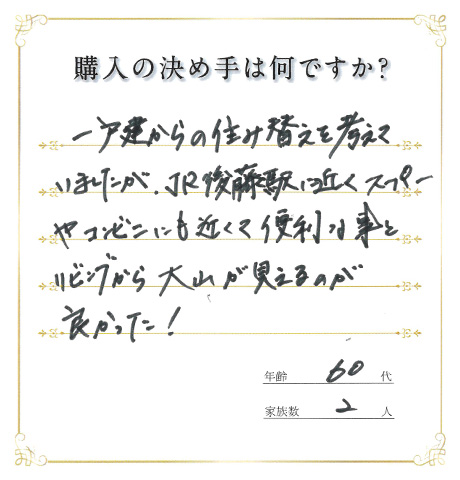 購入の決め手は何ですか?
一戸建からの住み替えを考えて
いましたが、JR後藤駅に近くスーパー
やコンビニにも近くて便利な事と
リビングから大山が見えるのが
良かった!
年齢 60 代
家族数 2 人